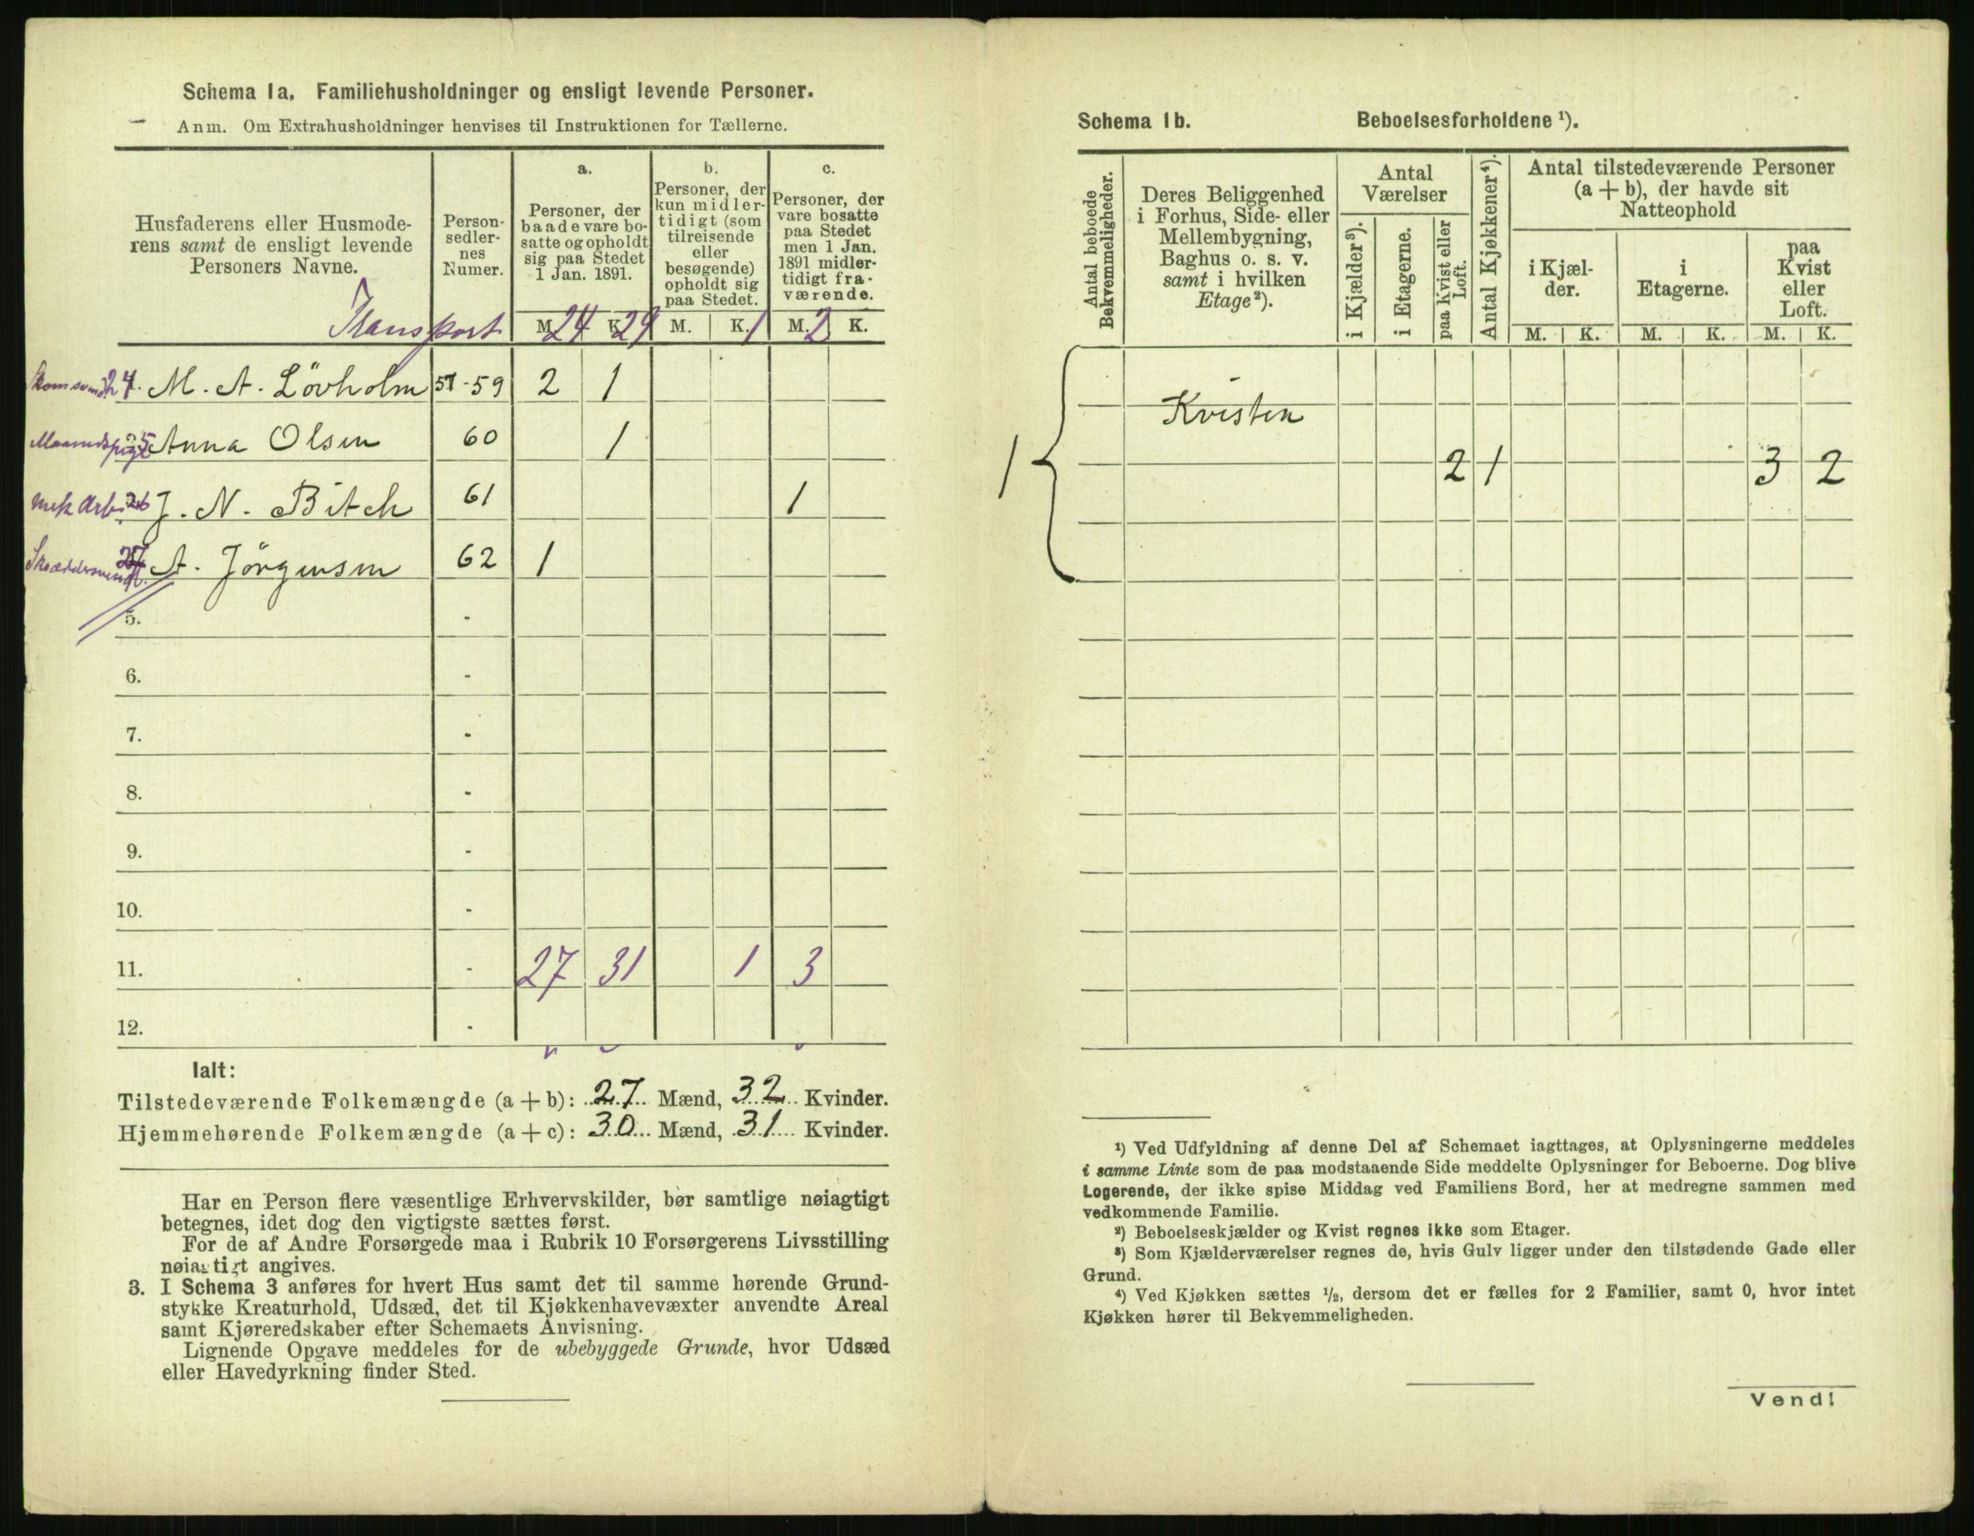 Schema 1a. Familiehusholdninger og ensligt levende Personer.
Anm. Om Extrahusholdninger henvises til Instruktionen for Tællerne.
Husfaderens eller Husmode-
rens samt de ensligt levende
Personers Navne.
Person-
sedler-
nes
Numer.
a.
Personer, der
baade vare bo-
satte og opholdt
sig paa Stedet
1 Jan. 1891.
b.
Personer, der
kun midler-
tidigt (som
tilreisende
eller
besøgende)
opholdt sig
paa Stedet.
c.
Personer, der
vare bosatte
paa Stedet
men 1 Jan.
1891 midler-
tidigt fra-
værende.
M. K. M. K. M. K.
Transport 24 29 1 2
24. M. A. Lövholm 57-59 2 1
25 Anna Olsen 60 1
mek Arb 26 J. N. Bitch 61 1
27 A. Jörgensen 62 1
5. -
6. -
7. -
8. -
9. -
10. -
11. - 27 31 1 3
12. -
Ialt:
Tilstedeværende Folkemængde (a + b): 27 Mænd, 32 Kvinder.
Hjemmehørende Folkemængde (a + c): 30 Mænd, 31 Kvinder.
Har en Person flere væsentlige Erhvervskilder, bør samtlige nøiagtigt
betegnes, idet dog den vigtigste sættes først.
For de af Andre Forsørgede maa i Rubrik 10 Forsørgerens Livsstilling
nøiagtigt angives.
3. I Schema 3 anføres for hvert Hus samt det til samme hørende Grund-
stykke Kreaturhold, Udsæd, det til Kjøkkenhavevæxter anvendte Areal
samt Kjøreredskaber efter Schemaets Anvisning.
Lignende Opgave meddeles for de ubebyggede Grunde, hvor Udsæd
eller Havedyrkning finder Sted.
Schema 1b. Beboelsesforholdene ¹).
Antal beboede
Bekvemmeligheder.
Deres Beliggenhed
i Forhus, Side- eller
Mellembygning,
Baghus o. s. v.
samt i hvilken
Etage²).
Antal
Værelser
i Kjælder³).
i Etagerne.
paa Kvist eller
Loft.
Antal Kjøkkener⁴).
Antal tilstedeværende Personer
(a + b), der havde sit
Natteophold
i Kjæl-
der.
i
Etagerne.
paa
Kvist
eller
Loft.
M. K. M. K. M. K.
Kvisten
1 2 1 3 2
¹) Ved Udfyldning af denne Del af Schemaet iagttages, at Oplysningerne meddeles
i samme Linie som de paa modstaaende Side meddelte Oplysninger for Beboerne. Dog blive
Logerende, der ikke spise Middag ved Familiens Bord, her at medregne sammen med
vedkommende Familie.
²) Beboelseskjælder og Kvist regnes ikke som Etager.
³) Som Kjælderværelser regnes de, hvis Gulv ligger under den tilstødende Gade eller
Grund.
⁴) Ved Kjøkken sættes ½, dersom det er fælles for 2 Familier, samt 0, hvor intet
Kjøkken hører til Bekvemmeligheden.
Vend!